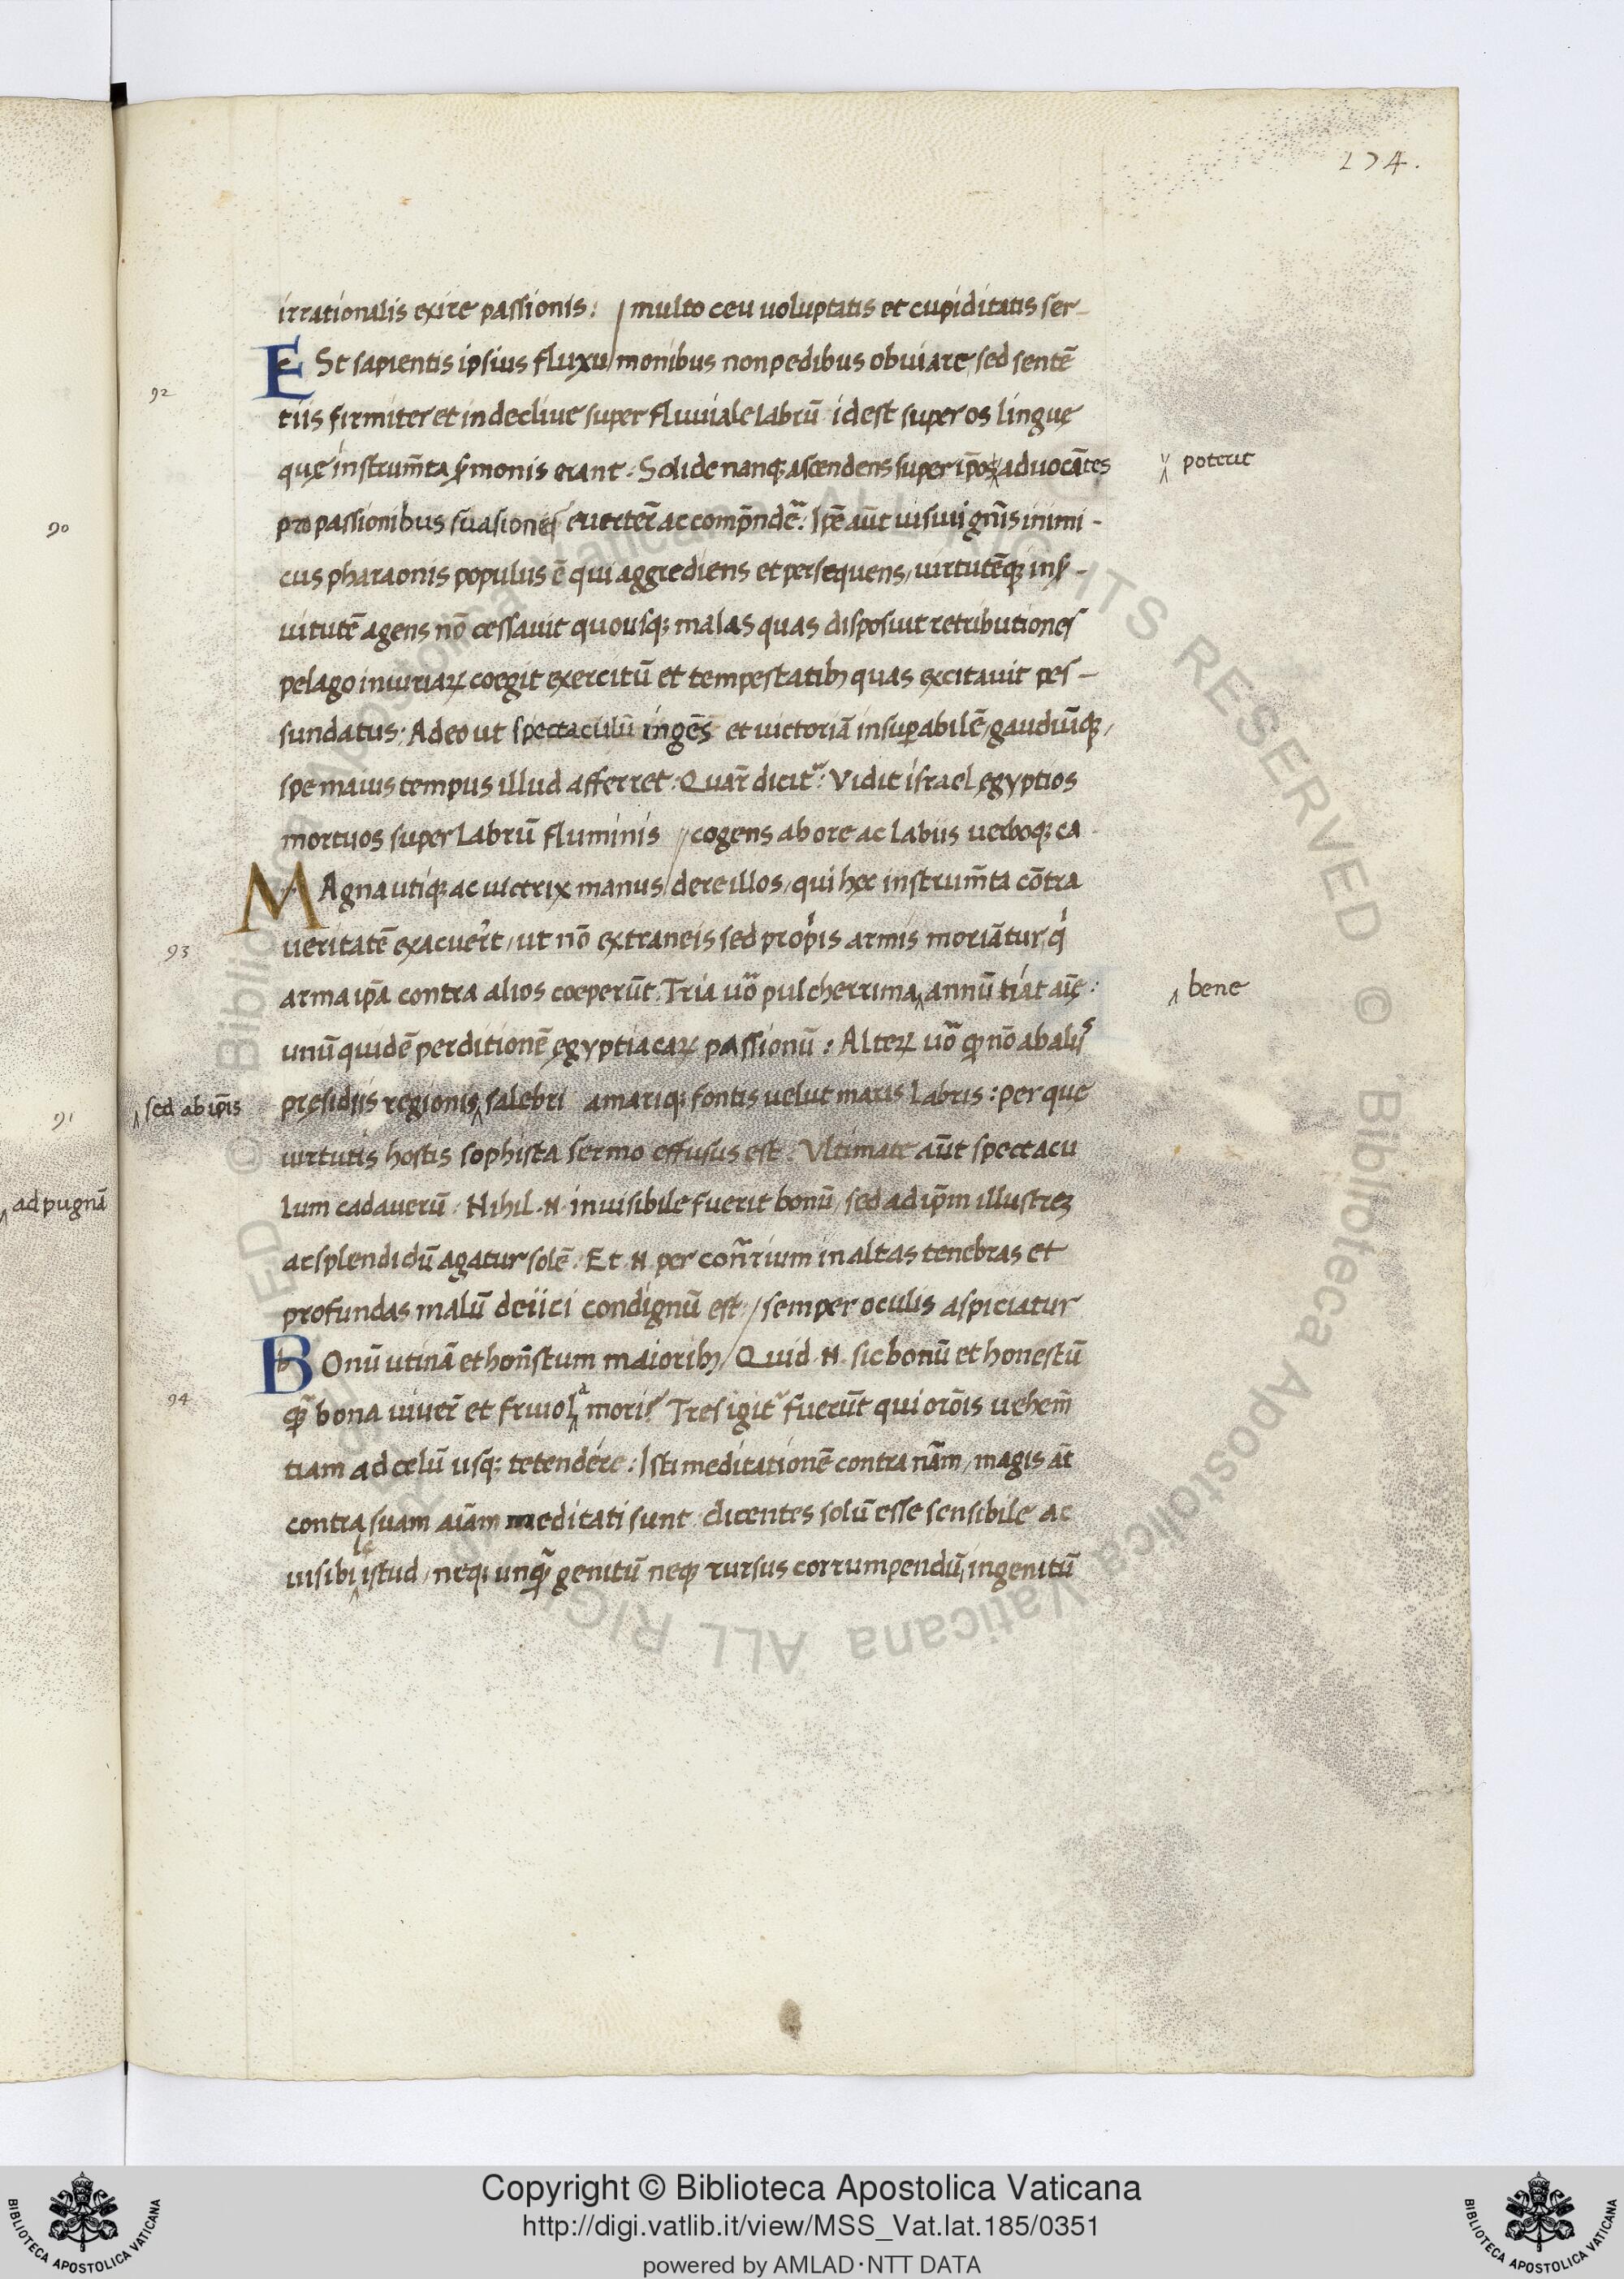 174.
irrationalis exire passionis: / multo ceu uoluptatis et cupiditatis ser-
ESt sapientis ipsius fluxu / monibus non pedibus obuiare, sed sentē
92
tiis firmiter et indecliue super fluuiale labrū idest super os linguę
quę instrum̄ta ꝑmonis erant: Solide nanq; ascendens super ip̄os aduocātes
poterit
pro passionibus suasiones euerter̄ ac
90
cus pharaonis populus ē qui aggrediens et persequens, uirtutēq;
uitutē agens nō cessauit quousq; malas quas disposuit retributiones
pelago iniuriaꝝ coegit exercitū et tempestatibꝫ quas excitauit pes-
sundatus: Adeo ut spectaculū ingēs et uictoriā insuꝑabilē, gaudiūq;,
spe maius tempus illud afferret: Quar̄ dicit᷑: Vidit israel egyptios
mortuos super labrū fluminis // cogens ab ore ac labiis uerboq; ca
MAgna utiq; ac uictrix manus / dere illos, qui hęc instrum̄ta cōtra
ueritatē exacuer̄t, ut nō extraneis sed propriis armis moriātur, qͥ
93
arma ip̄a contra alios coeperūt. Tria uo᷑ pulcherrima annūtiat aīę:
bene
unū quidē perditionē ęgyptiacaꝝ passionū: Alteꝝ uo᷑ nō ab alis
presidiis regionis salebri amariq; fontis uelut maris labris: per que
sed ab ip̄is
91
uirtutis hostis sophista sermo effusus est: Vltimate aūt spectacu
ad pugnā
lum cadauerū: Nihil .N. inuisibile fuerit bonū, sed ad ip̄m illustrez
ac splendidū agatur solē: Et .N. per con̄rium in altas tenebras et
profundas malū deiici condignū est: / semper oculis aspiciatur
BOnū utinā et hon̄stum maioribꝫ / Quid .N. sic bonū et honestū
94
bona uiuer̄ et friuola mori? Tres igit᷑ fuerūt qui orōis uehem̄
tiam ad celū usq; tetendere: Isti meditationē contra nām, magis āt
contra suam aīam meditati sunt dicentes solū esse sensibile ac
uisibile istud, neq; unq̄ genitū neq; rursus corrumpendū, ingenitū
Copyright © Biblioteca Apostolica Vaticana
http://digi.vatlib.it/view/MSS_Vat.lat.185/0351
powered by AMLAD·NTT DATA
BIBLIOTECA APOSTOLICA VATICANA
BIBLIOTECA APOSTOLICA VATICANA
© Biblioteca Apostolica Vaticana ALL RIGHTS RESERVED © Biblioteca Apostolica Vaticana ALL RIGHTS RESERVED